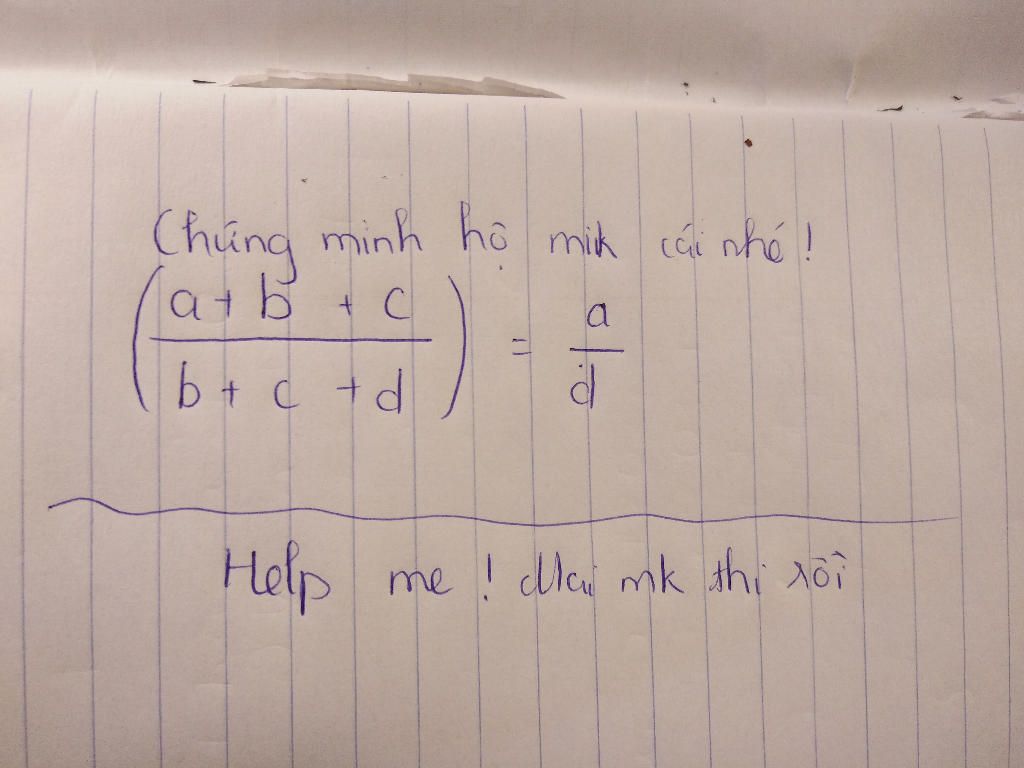 Chứng minh hộ mik cái nhé!
(a + b + c / b + c + d) = a / d
Help me! Mai mk thi rồi